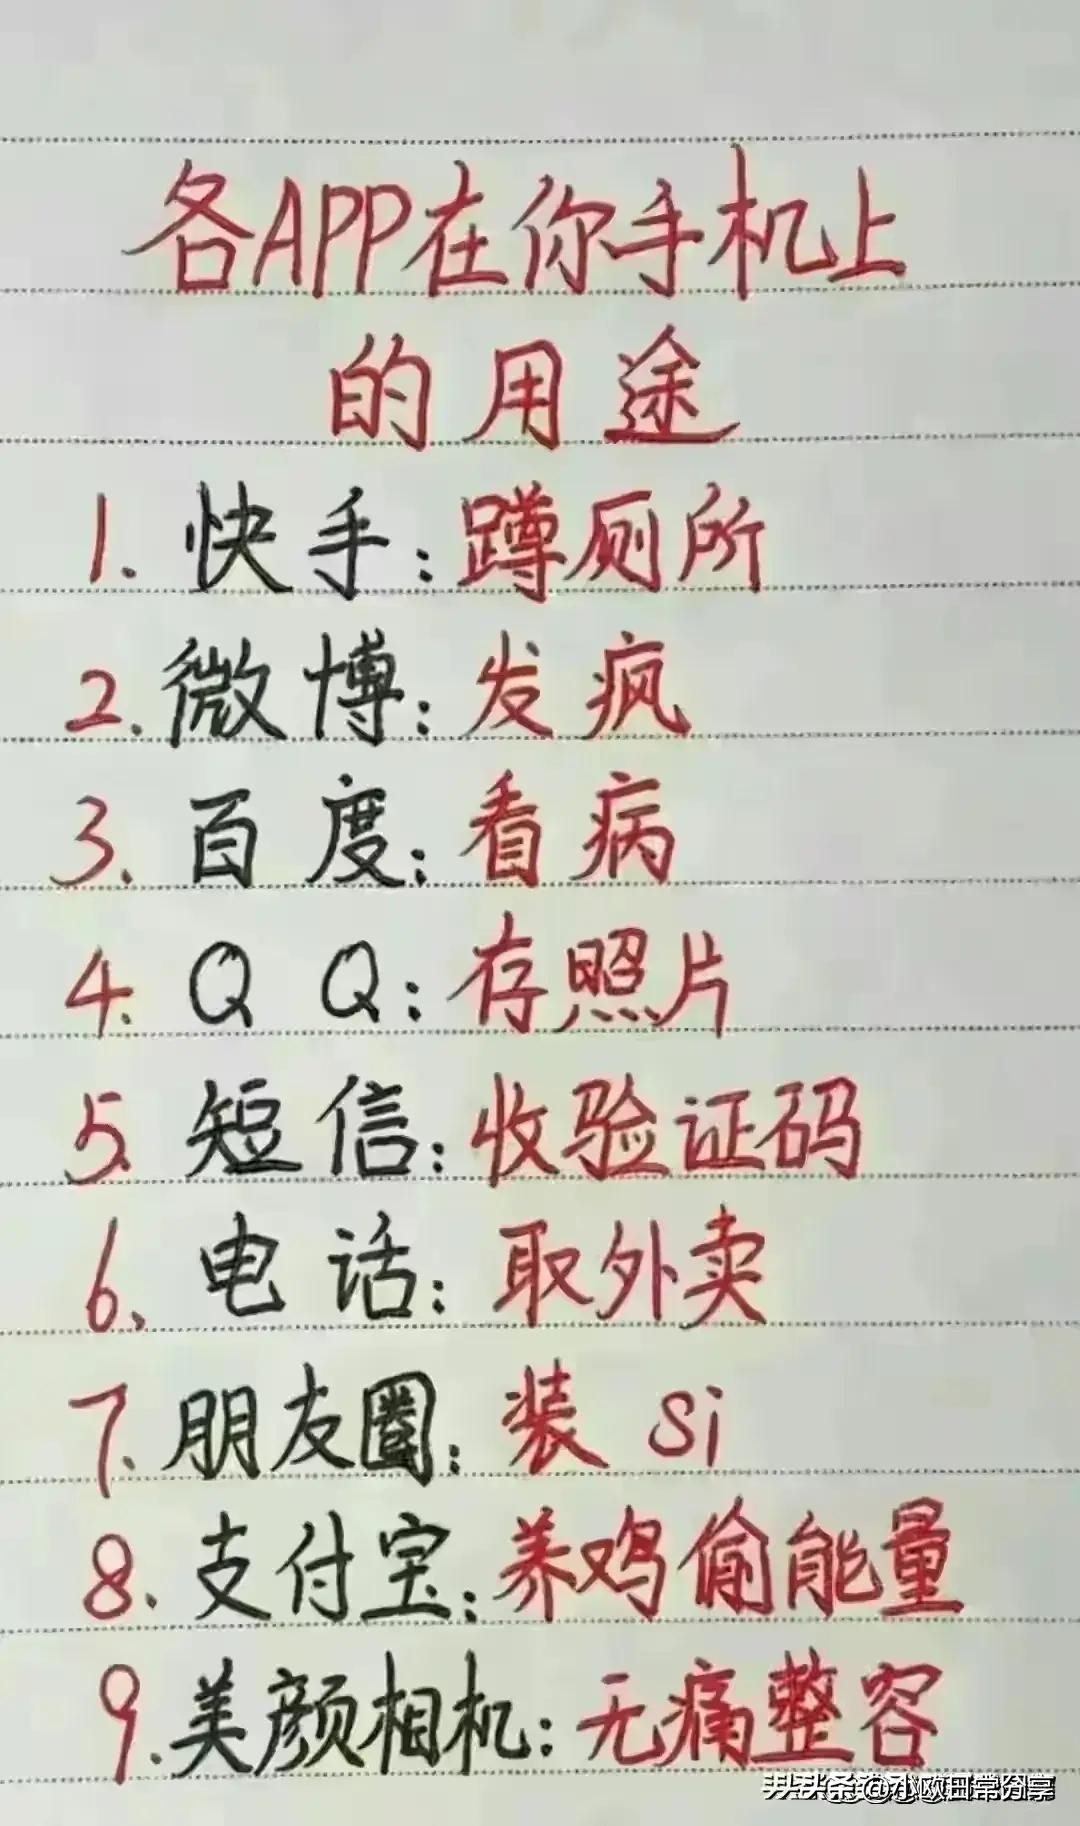 各APP在你手机上
的用途
1.快手:蹲厕所
2.微博:发疯
3.百度:看病
4.QQ:存照片
5.短信:收验证码
6.电话:取外卖
7.朋友圈:装si
8.支付宝:养鸡偷能量
9.美颜相机:无痛整容
头条@小欧日常分享